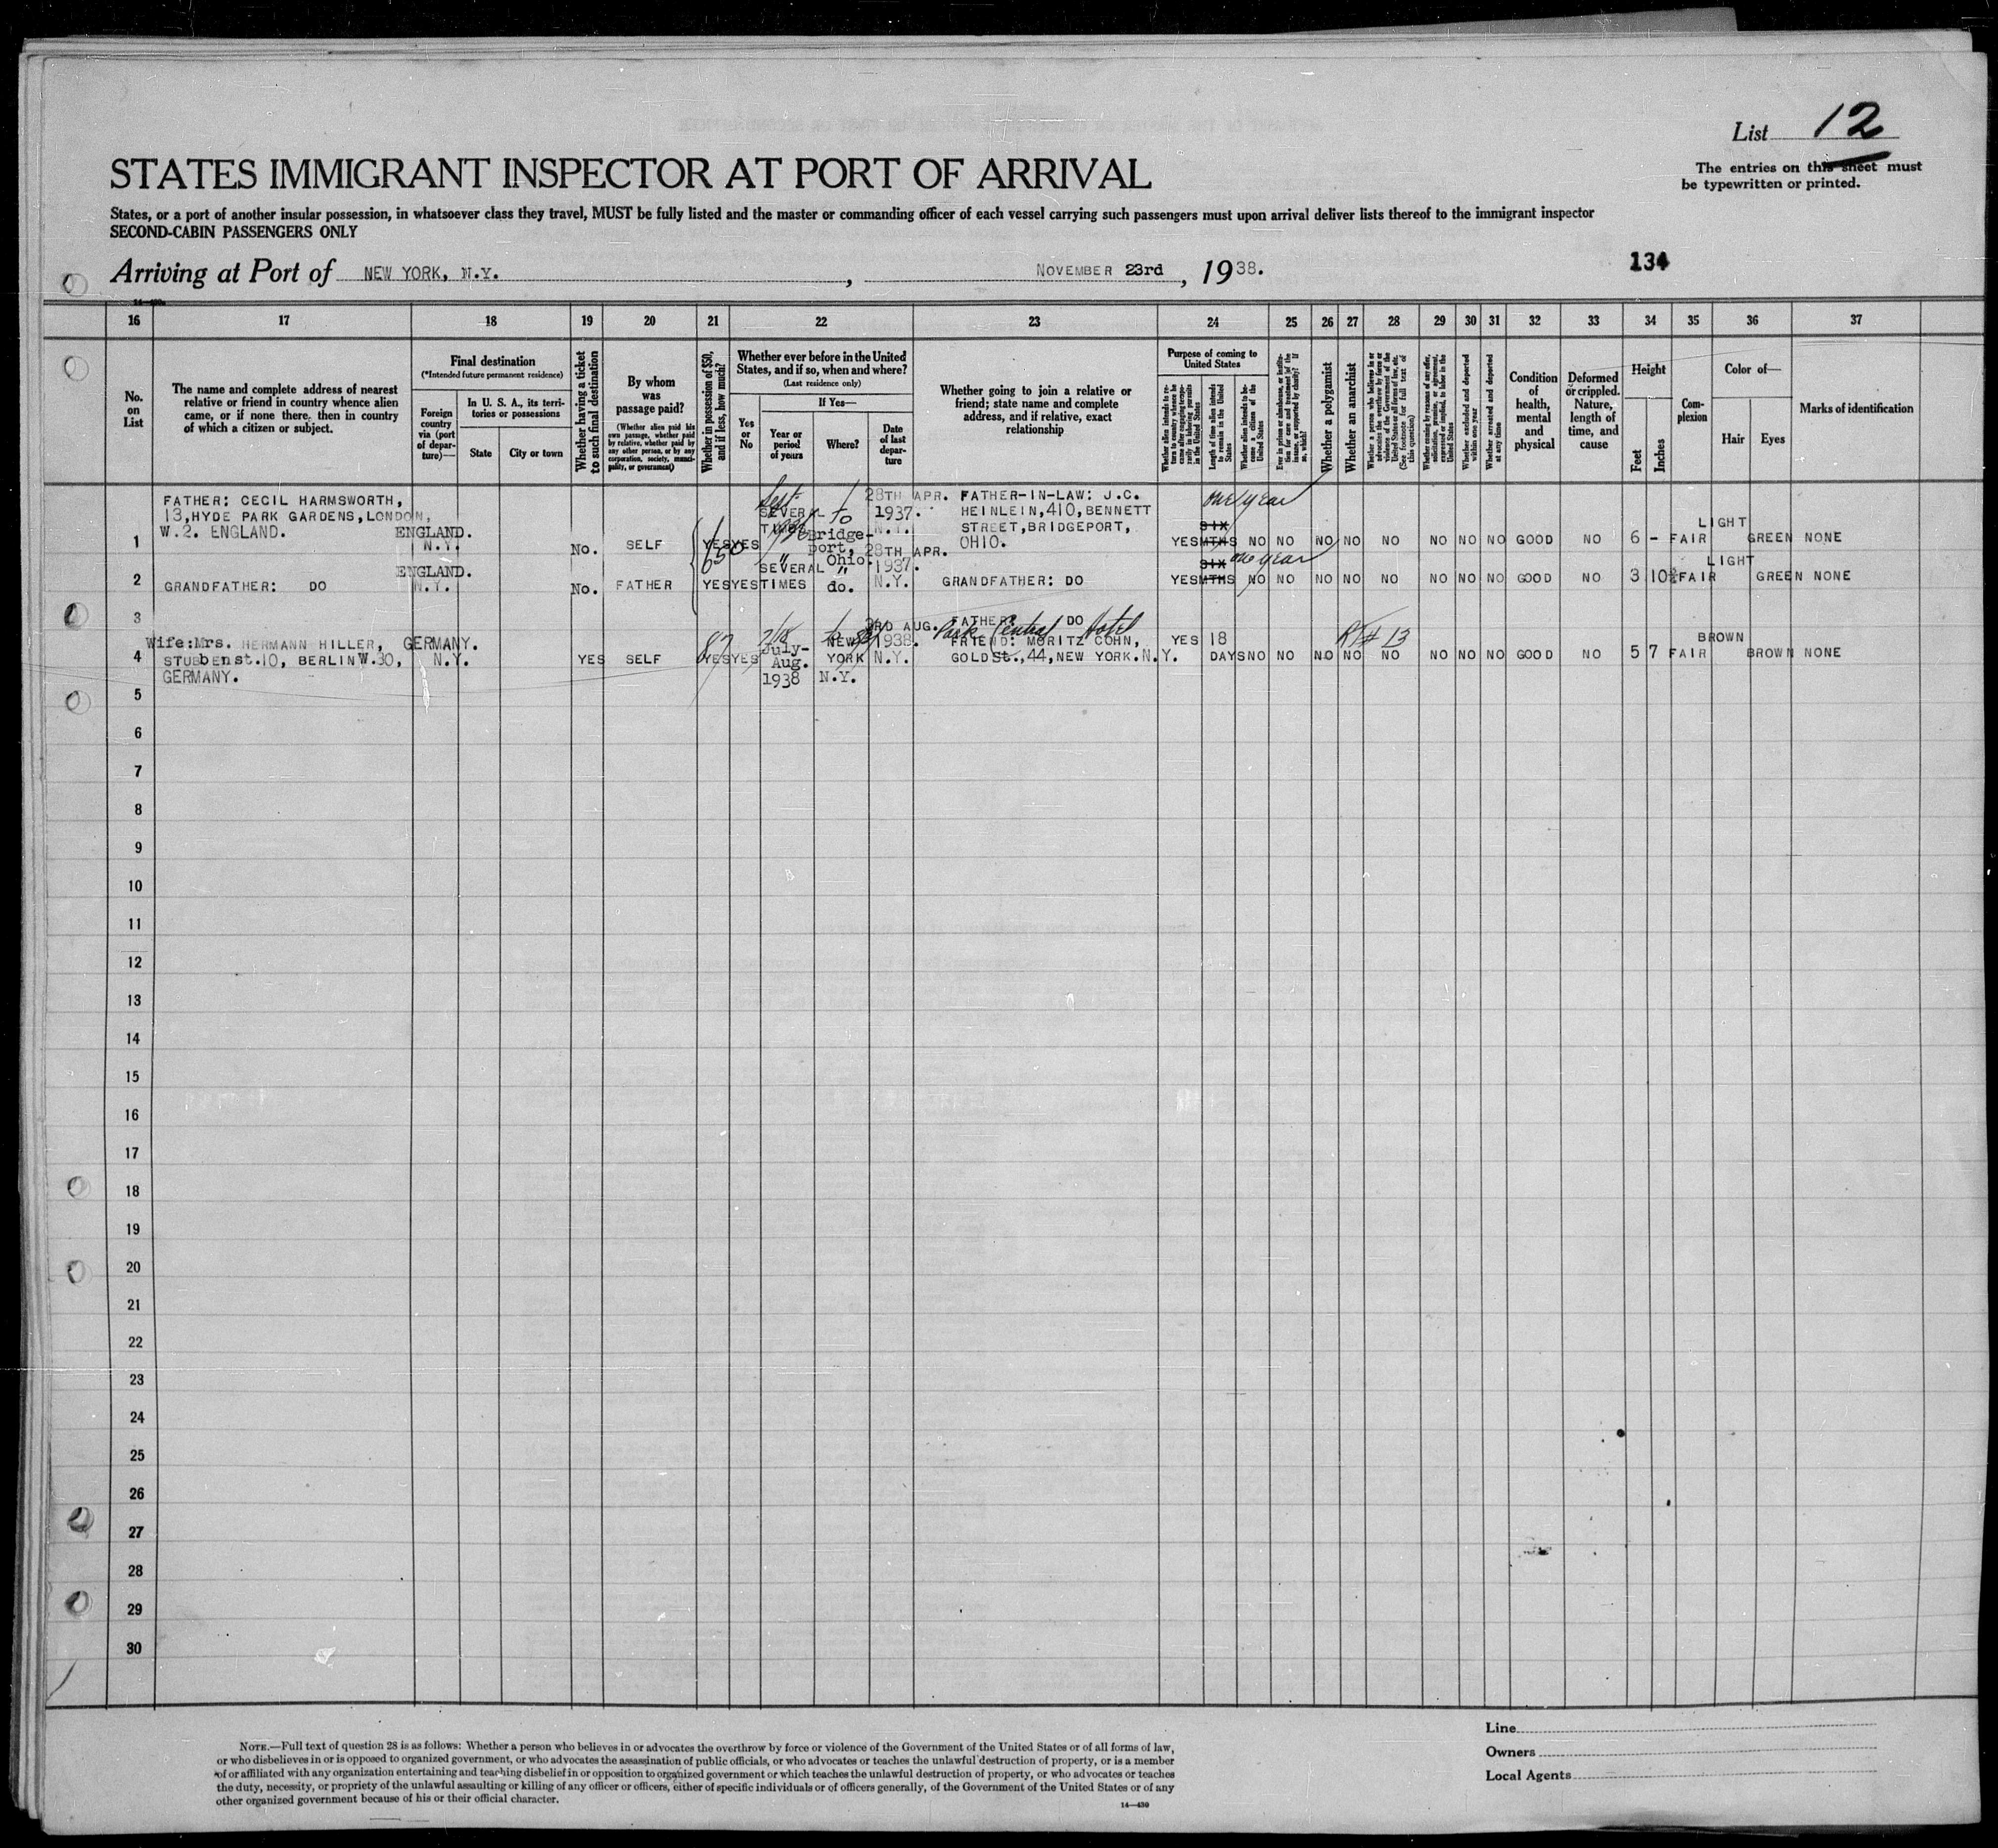 List 12
The entries on this sheet must
be typewritten or printed.
STATES IMMIGRANT INSPECTOR AT PORT OF ARRIVAL
States, or a port of another insular possession, in whatsoever class they travel, MUST be fully listed and the master or commanding officer of each vessel carrying such passengers must upon arrival deliver lists thereof to the immigrant inspector
SECOND-CABIN PASSENGERS ONLY
134
Arriving at Port of NEW YORK, N.Y. , NOVEMBER 23rd , 1938.
16 17 18 19 20 21 22 23 24 25 26 27 28 29 30 31 32 33 34 35 36 37
No. on List
The name and complete address of nearest
relative or friend in country whence alien
came, or if none there, then in country
of which a citizen or subject.
Final destination
(*Intended future permanent residence)
Foreign country via (port of departure)—
In U. S. A., its territories or possessions
State
City or town
Whether having a ticket to such final destination
By whom was passage paid?
(Whether alien paid his own passage, whether paid by relative, whether paid by any other person, or by any corporation, society, municipality, or government)
Whether in possession of $50, and if less, how much?
Whether ever before in the United States, and if so, when and where?
(Last residence only)
Yes or No
If Yes—
Year or period of years
Where?
Date of last departure
Whether going to join a relative or
friend; state name and complete
address, and if relative, exact
relationship
Purpose of coming to United States
Length of time alien intends to remain in the United States
Whether alien intends to become a citizen of the United States
Whether a polygamist
Whether an anarchist
Whether excluded and deported within one year
Whether arrested and deported at any time
Condition of health, mental and physical
Deformed or crippled. Nature, length of time, and cause
Height
Feet
Inches
Complexion
Color of—
Hair
Eyes
Marks of identification
FATHER: CECIL HARMSWORTH,
13, HYDE PARK GARDENS, LONDON,
W.2. ENGLAND.
1 ENGLAND. N.Y. No. SELF 150 YES YES Sept 1936 SEVERAL TIMES to Bridgeport, Ohio. 28TH APR. 1937. N.Y. FATHER-IN-LAW: J.C. HEINLEIN, 410, BENNETT STREET, BRIDGEPORT, OHIO. YES SIX MTHS one year NO NO NO NO NO NO NO NO GOOD NO 6 - FAIR LIGHT GREEN NONE
2 GRANDFATHER: DO ENGLAND. N.Y. No. FATHER YES YES " SEVERAL TIMES " do. 28TH APR. 1937. N.Y. GRANDFATHER: DO YES SIX MTHS one year NO NO NO NO NO NO NO NO GOOD NO 3 10½ FAIR LIGHT GREEN NONE
3 FATHER: DO
4 Wife: Mrs. HERMANN HILLER, STUBBenst. 10, BERLIN W.30, GERMANY. GERMANY. N.Y. YES SELF YES YES July-Aug. 1938 NEW YORK N.Y. 3RD AUG. 1938. N.Y. Park Central Hotel FRIEND: MORITZ COHN, GOLD St., 44, NEW YORK. N.Y. YES 18 DAYS NO NO NO NO NO NO NO NO GOOD NO 5 7 FAIR BROWN BROWN NONE
5
6
7
8
9
10
11
12
13
14
15
16
17
18
19
20
21
22
23
24
25
26
27
28
29
30
Line
Owners
Local Agents
NOTE.—Full text of question 28 is as follows: Whether a person who believes in or advocates the overthrow by force or violence of the Government of the United States or of all forms of law,
or who disbelieves in or is opposed to organized government, or who advocates the assassination of public officials, or who advocates or teaches the unlawful destruction of property, or is a member
of or affiliated with any organization entertaining and teaching disbelief in or opposition to organized government or which teaches the unlawful destruction of property, or who advocates or teaches
the duty, necessity, or propriety of the unlawful assaulting or killing of any officer or officers, either of specific individuals or of officers generally, of the Government of the United States or of any
other organized government because of his or their official character.
14—430